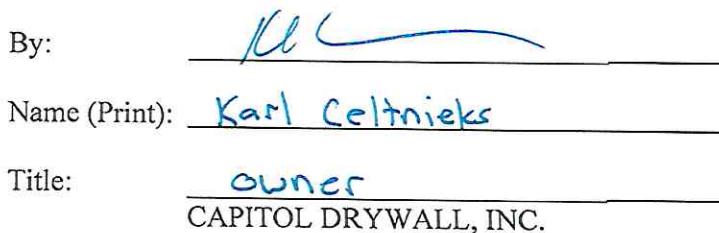 By:
Name (Print): Karl Celtnieks
Title: owner
CAPITOL DRYWALL, INC.